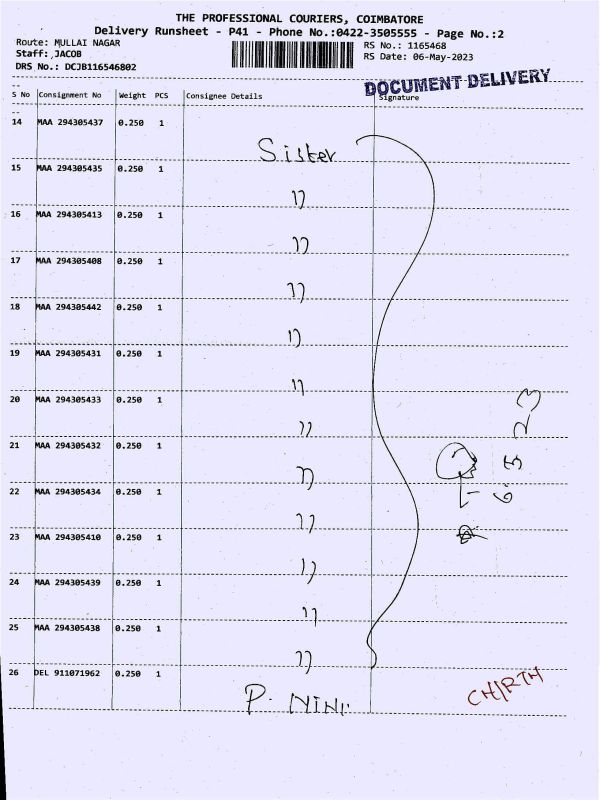 THE PROFESSIONAL COURIERS, COIMBATORE
Delivery Runsheet - P41 - Phone No.:0422-3505555 - Page No.:2
Route: MULLAI NAGAR
RS No.: 1165468
Staff: JACOB
RS Date: 06-May-2023
DRS No.: DCJB116546802
DOCUMENT DELIVERY
S No Consignment No Weight PCS Consignee Details Signature
14 MAA 294305437 0.250 1
Sister
15 MAA 294305435 0.250 1
”
16 MAA 294305413 0.250 1
”
17 MAA 294305408 0.250 1
”
18 MAA 294305442 0.250 1
”
19 MAA 294305431 0.250 1
”
20 MAA 294305433 0.250 1
”
21 MAA 294305432 0.250 1
”
22 MAA 294305434 0.250 1
”
23 MAA 294305410 0.250 1
”
24 MAA 294305439 0.250 1
”
25 MAA 294305438 0.250 1
”
6.5.23
26 DEL 911071962 0.250 1
P.